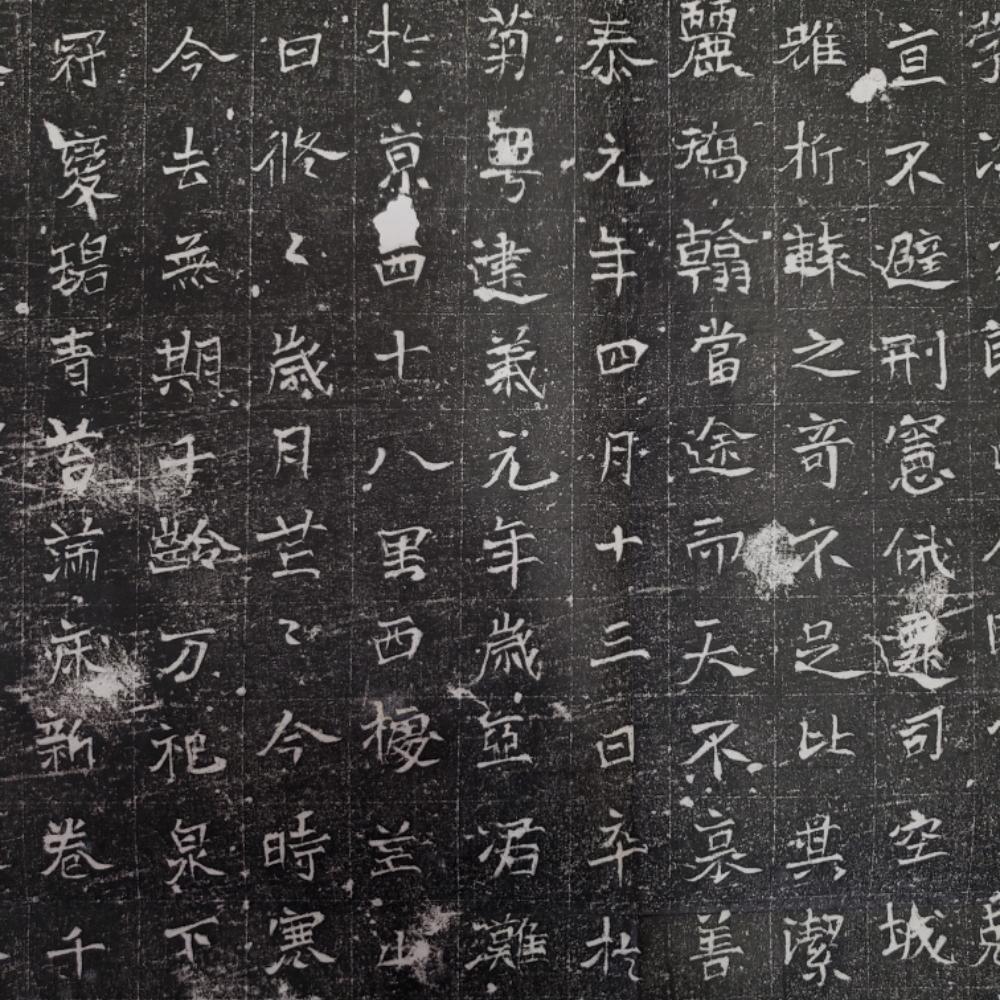 亘不避刑憲俄遷司空城
雖折軼之奇不足比其潔
麗鴻翰當途而天不哀善
泰元年四月十三日卒於
菊粤建義元年歲亞涒灘
於京西十八里西椶芒山
曰修〻歲月芒〻今時寒
今去無期千齡万祀泉下
冠寢琨青苔滿床新卷千